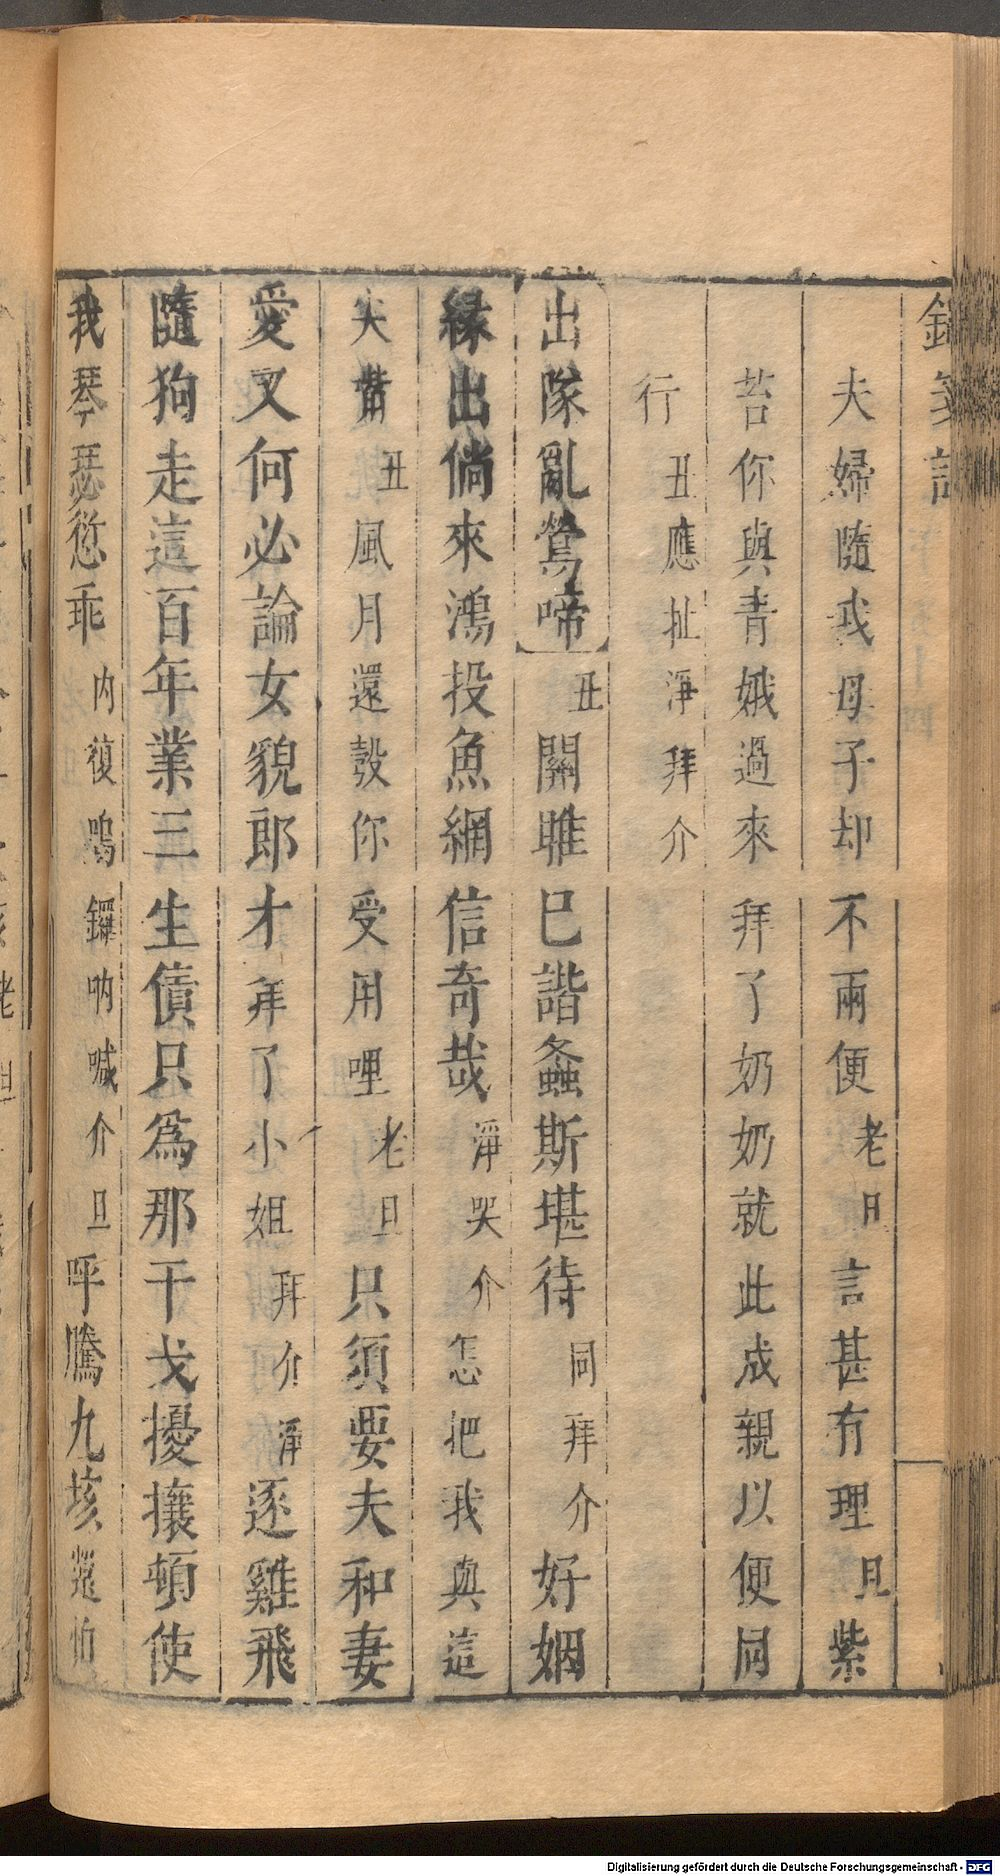 夫婦隨我母子却不兩便老旦言甚有理旦紫
苔你與青娥過來拜了奶奶就此成親以便同
行丑應扯淨拜介
出隊亂鶯啼丑關雎已諧螽斯堪待同拜介好姻
緣出倘來鴻投魚網信奇哉淨哭介怎把我與這
尖嘴丑風月還彀你受用哩老旦只須要夫和妻
愛又何必論女貌郎才拜了小姐拜介淨逐雞飛
隨狗走這百年業三生債只為那干戈擾攘頓使
我琴瑟愆乖内復鳴鑼吶喊介旦呼騰九垓怕
Digitalisierung gefördert durch die Deutsche Forschungsgemeinschaft - DFG